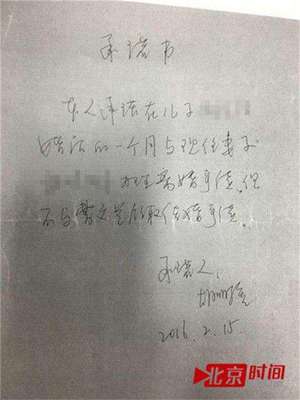 承诺书
本人承诺在儿子
婚后的一个月与现任妻子
办理离婚手续,但
不与曹文 取结婚手续.
承诺人:
胡
2016.2.15.
北京时间